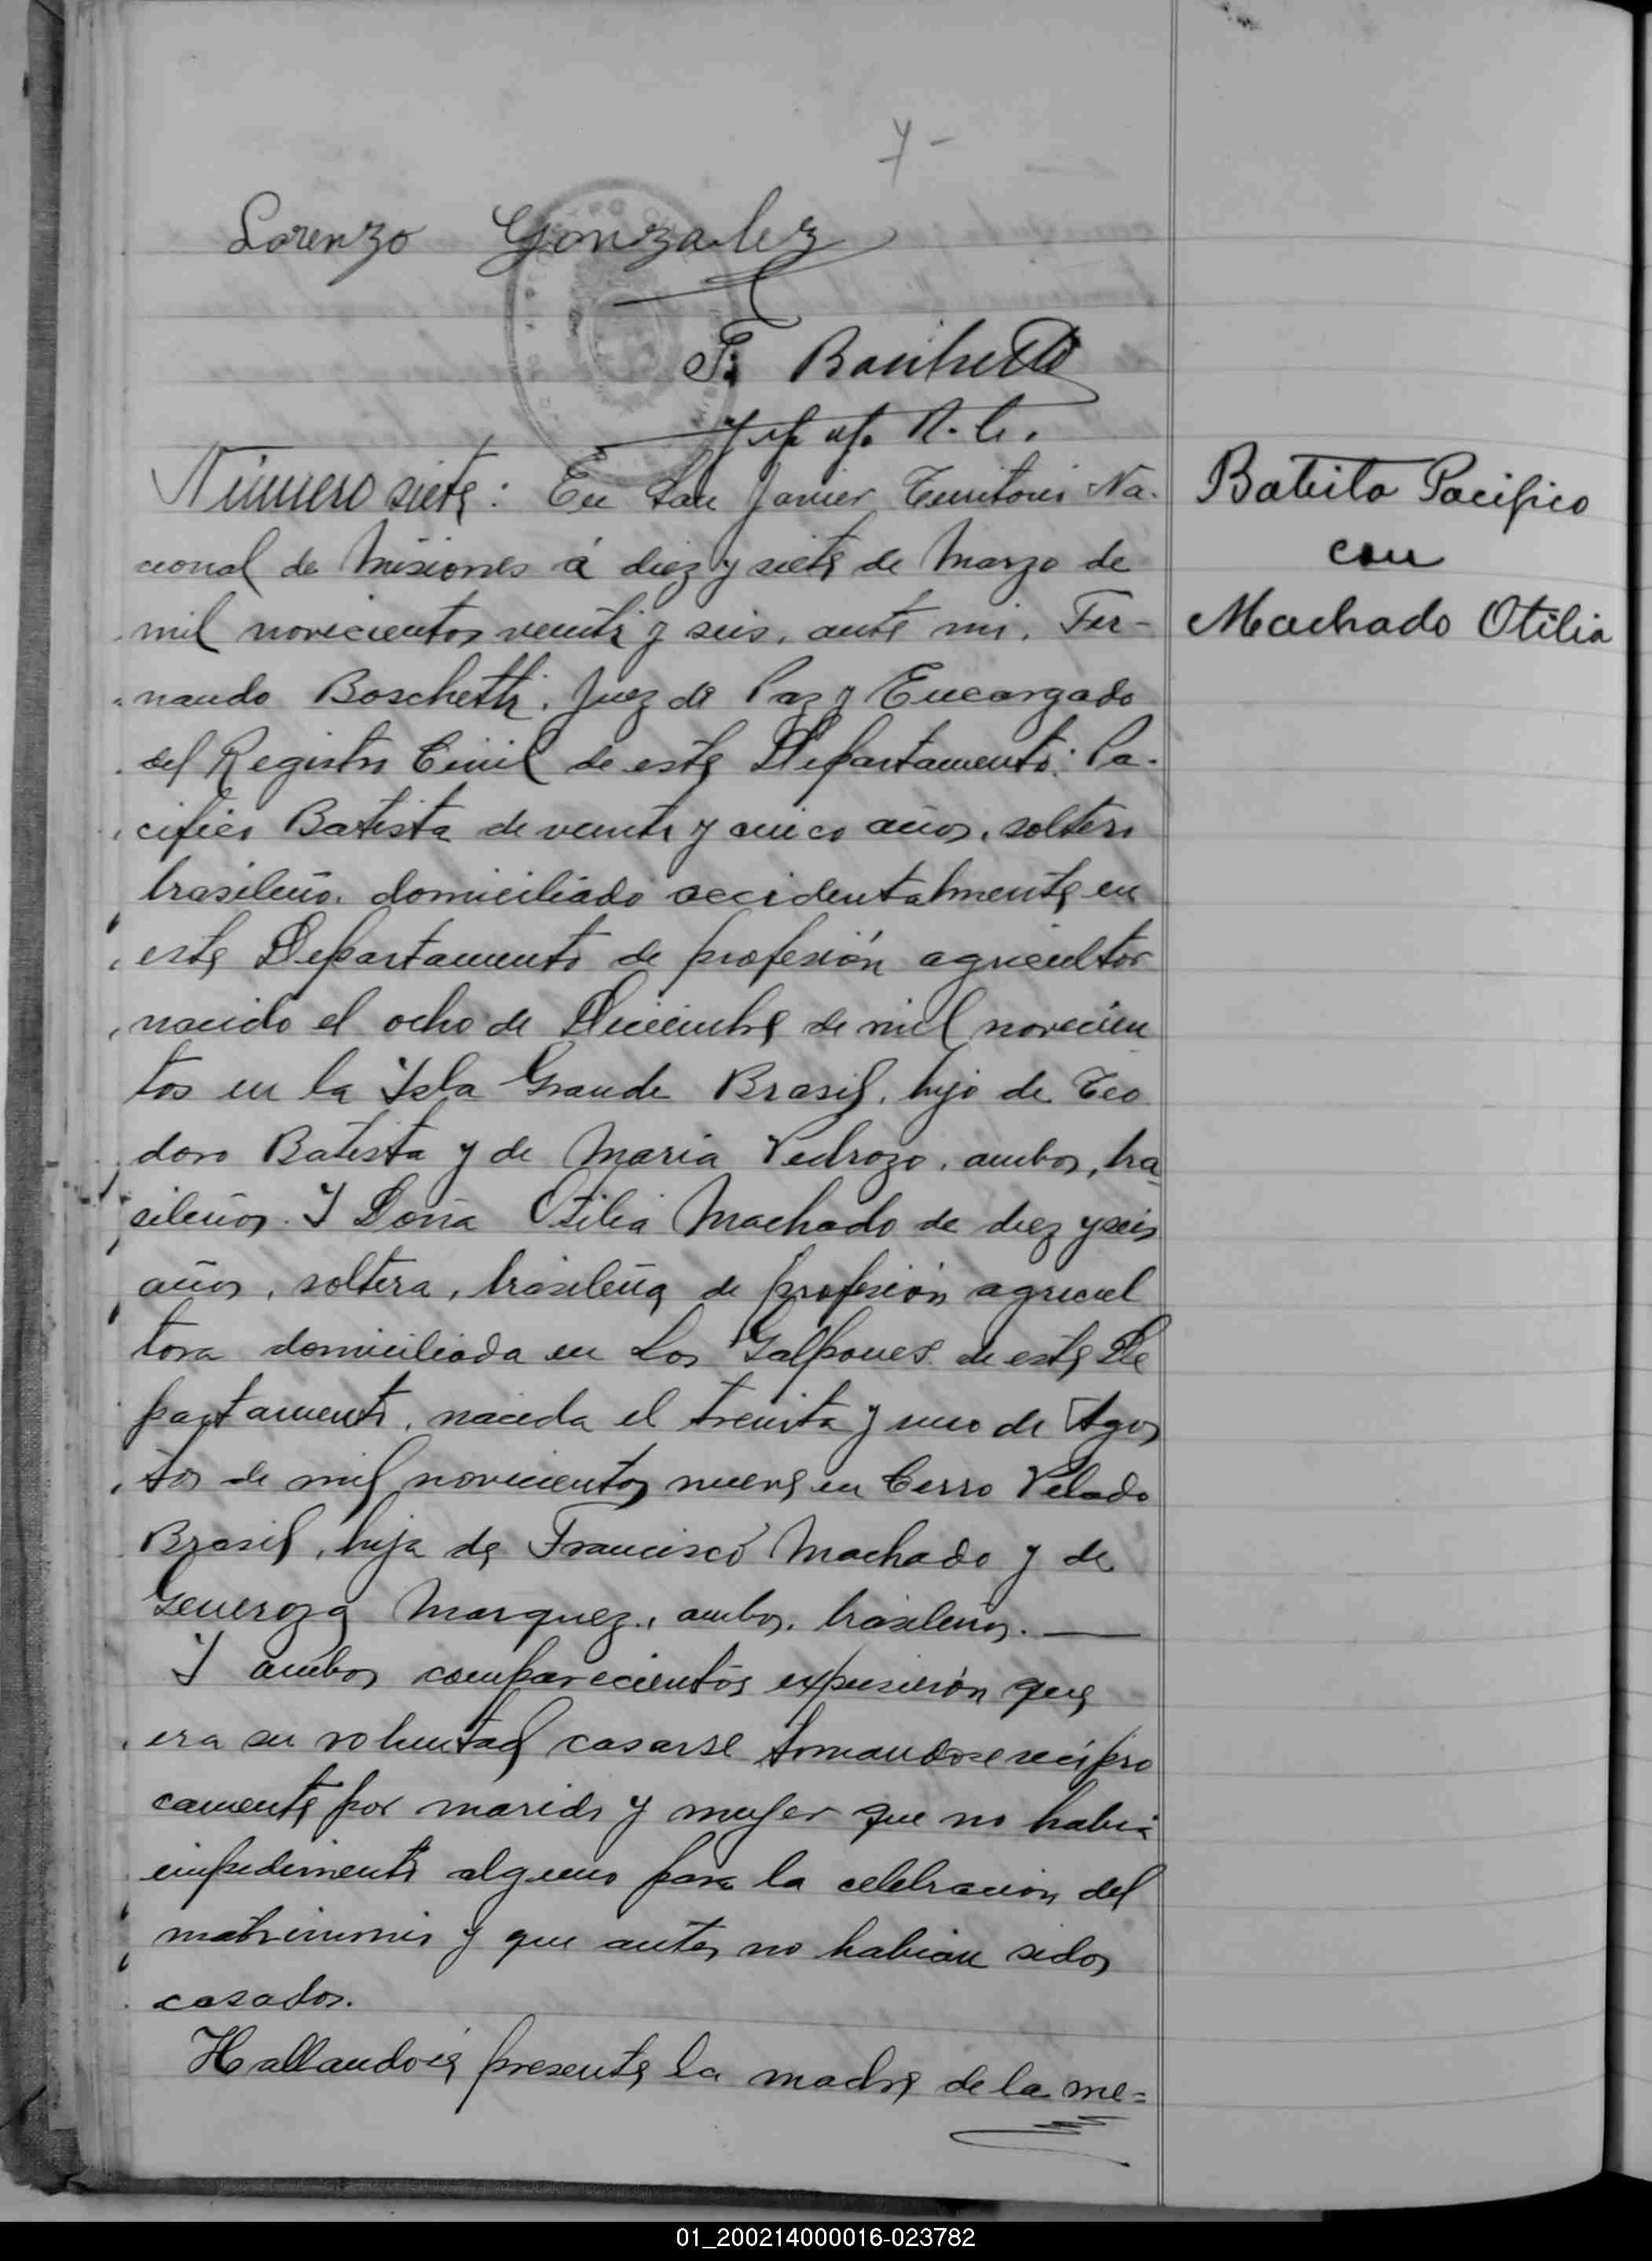 7-
Lorenzo Gonzalez
F. Boschetti
R. C.
Número siete: En San Javier Territorio Na-
cional de Misiones á diez y siete de Marzo de
mil novecientos veinte y seis, ante mi, Fer-
nando Boschetti, Juez de Paz y Encargado
del Registro Civil de este Departamento: Pa-
cifico Batista de veinte y cinco años, soltero
brasileño, domiciliado accidentalmente en
este Departamento de profesión agricultor
nacido el ocho de Diciembre de mil novecien
tos en la Isla Grande Brasil, hijo de Teo
doro Batista y de Maria Pedrozo, ambos, bra
sileños. Y Doña Otilia Machado de diez y seis
años, soltera, brasileña de profesión agricul
tora domiciliada en Los Galpones de este De
partamento, nacida el treinta y uno de Agos
tos de mil novecientos nueve en Cerro Pelado
Brasil, hija de Francisco Machado y de
Generoza Marquez, ambos, brasileños. —
Y ambos comparecientos expusierón que
era su voluntad casarse tomandose recipro
camente por marido y mujer que no habia
impedimento alguno para la celebracion del
matrimonio y que antes no habian sidos
casados.
Hallandose presente la madre de la me=
Batista Pacifico
con
Machado Otilia
01_200214000016-023782